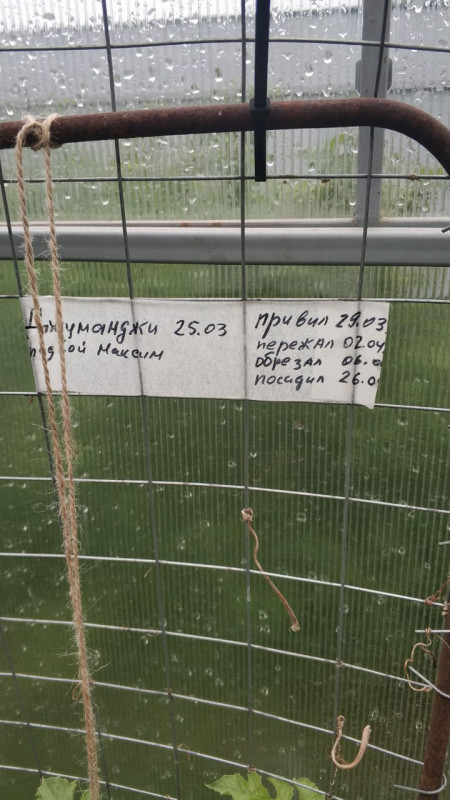 Джуманджи 25.03
подвой Максим
привил 29.03
пережал 02.04
обрезал 06.0
посадил 26.0